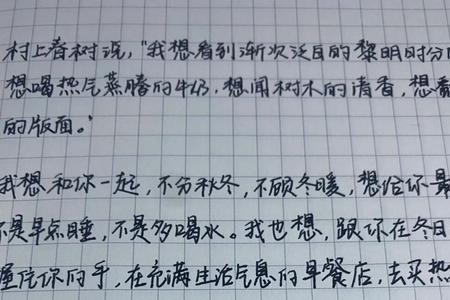 村上春树说,"我想看到渐次泛白的黎明时分
想喝热气蒸腾的牛奶,想闻树木的清香,想
的版面。"
我想和你一起,不分秋冬,不顾冬暖,想给你最
不是早点睡,不是多喝水。我也想,跟你在冬日
握住你的手,在充满生活气息的早餐店,去买热